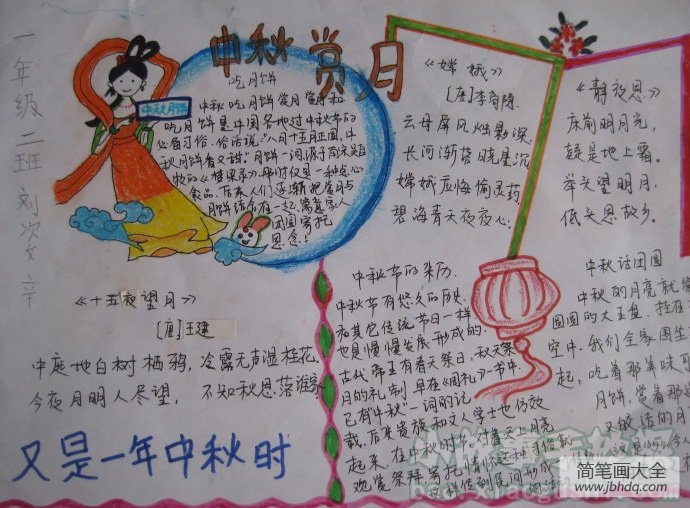 中秋赏月
一年级二班刘次辛
吃月饼
中秋吃月饼赏月赏月和
吃月饼是中国各地过中秋节的
必备习俗,俗话说:"八月十五月正圆,中
秋月饼香又甜"。月饼一词,源于南宋吴自
牧的《梦梁录》,那时仅是一种点心
食品。后来人们逐渐把赏月与
月饼结合在一起,寓意家人
团圆,寄托
思念。
《嫦娥》
[唐]李商隐
云母屏风烛影深,
长河渐落晓星沉
嫦娥应悔偷灵药
碧海青天夜夜心。
《静夜思》
床前明月光,
疑是地上霜。
举头望明月,
低头思故乡。
《十五夜望月》
[唐]王建
中庭地白树栖鸦,冷露无声湿桂花,
今夜月明人尽望,不知秋思落谁家
又是一年中秋时
中秋节的来历.
中秋节有悠久的历史,
和其它传统节日一样
也是慢慢发展形成的,
古代帝王有春天祭日,秋天祭
月的礼制,早在《周礼》一书中,
已有"中秋"一词的记
载,后来贵族和文人学士也仿效
起来,在中秋时节,对着天上
观赏祭拜,寄托情怀
中秋话团圆
中秋的月亮就像
圆圆的大玉盘,挂在
空中,我们全家围坐
起,吃着那美味可
月饼,赏着那
又皎洁的月
简笔画大全
www.jbhdq.com